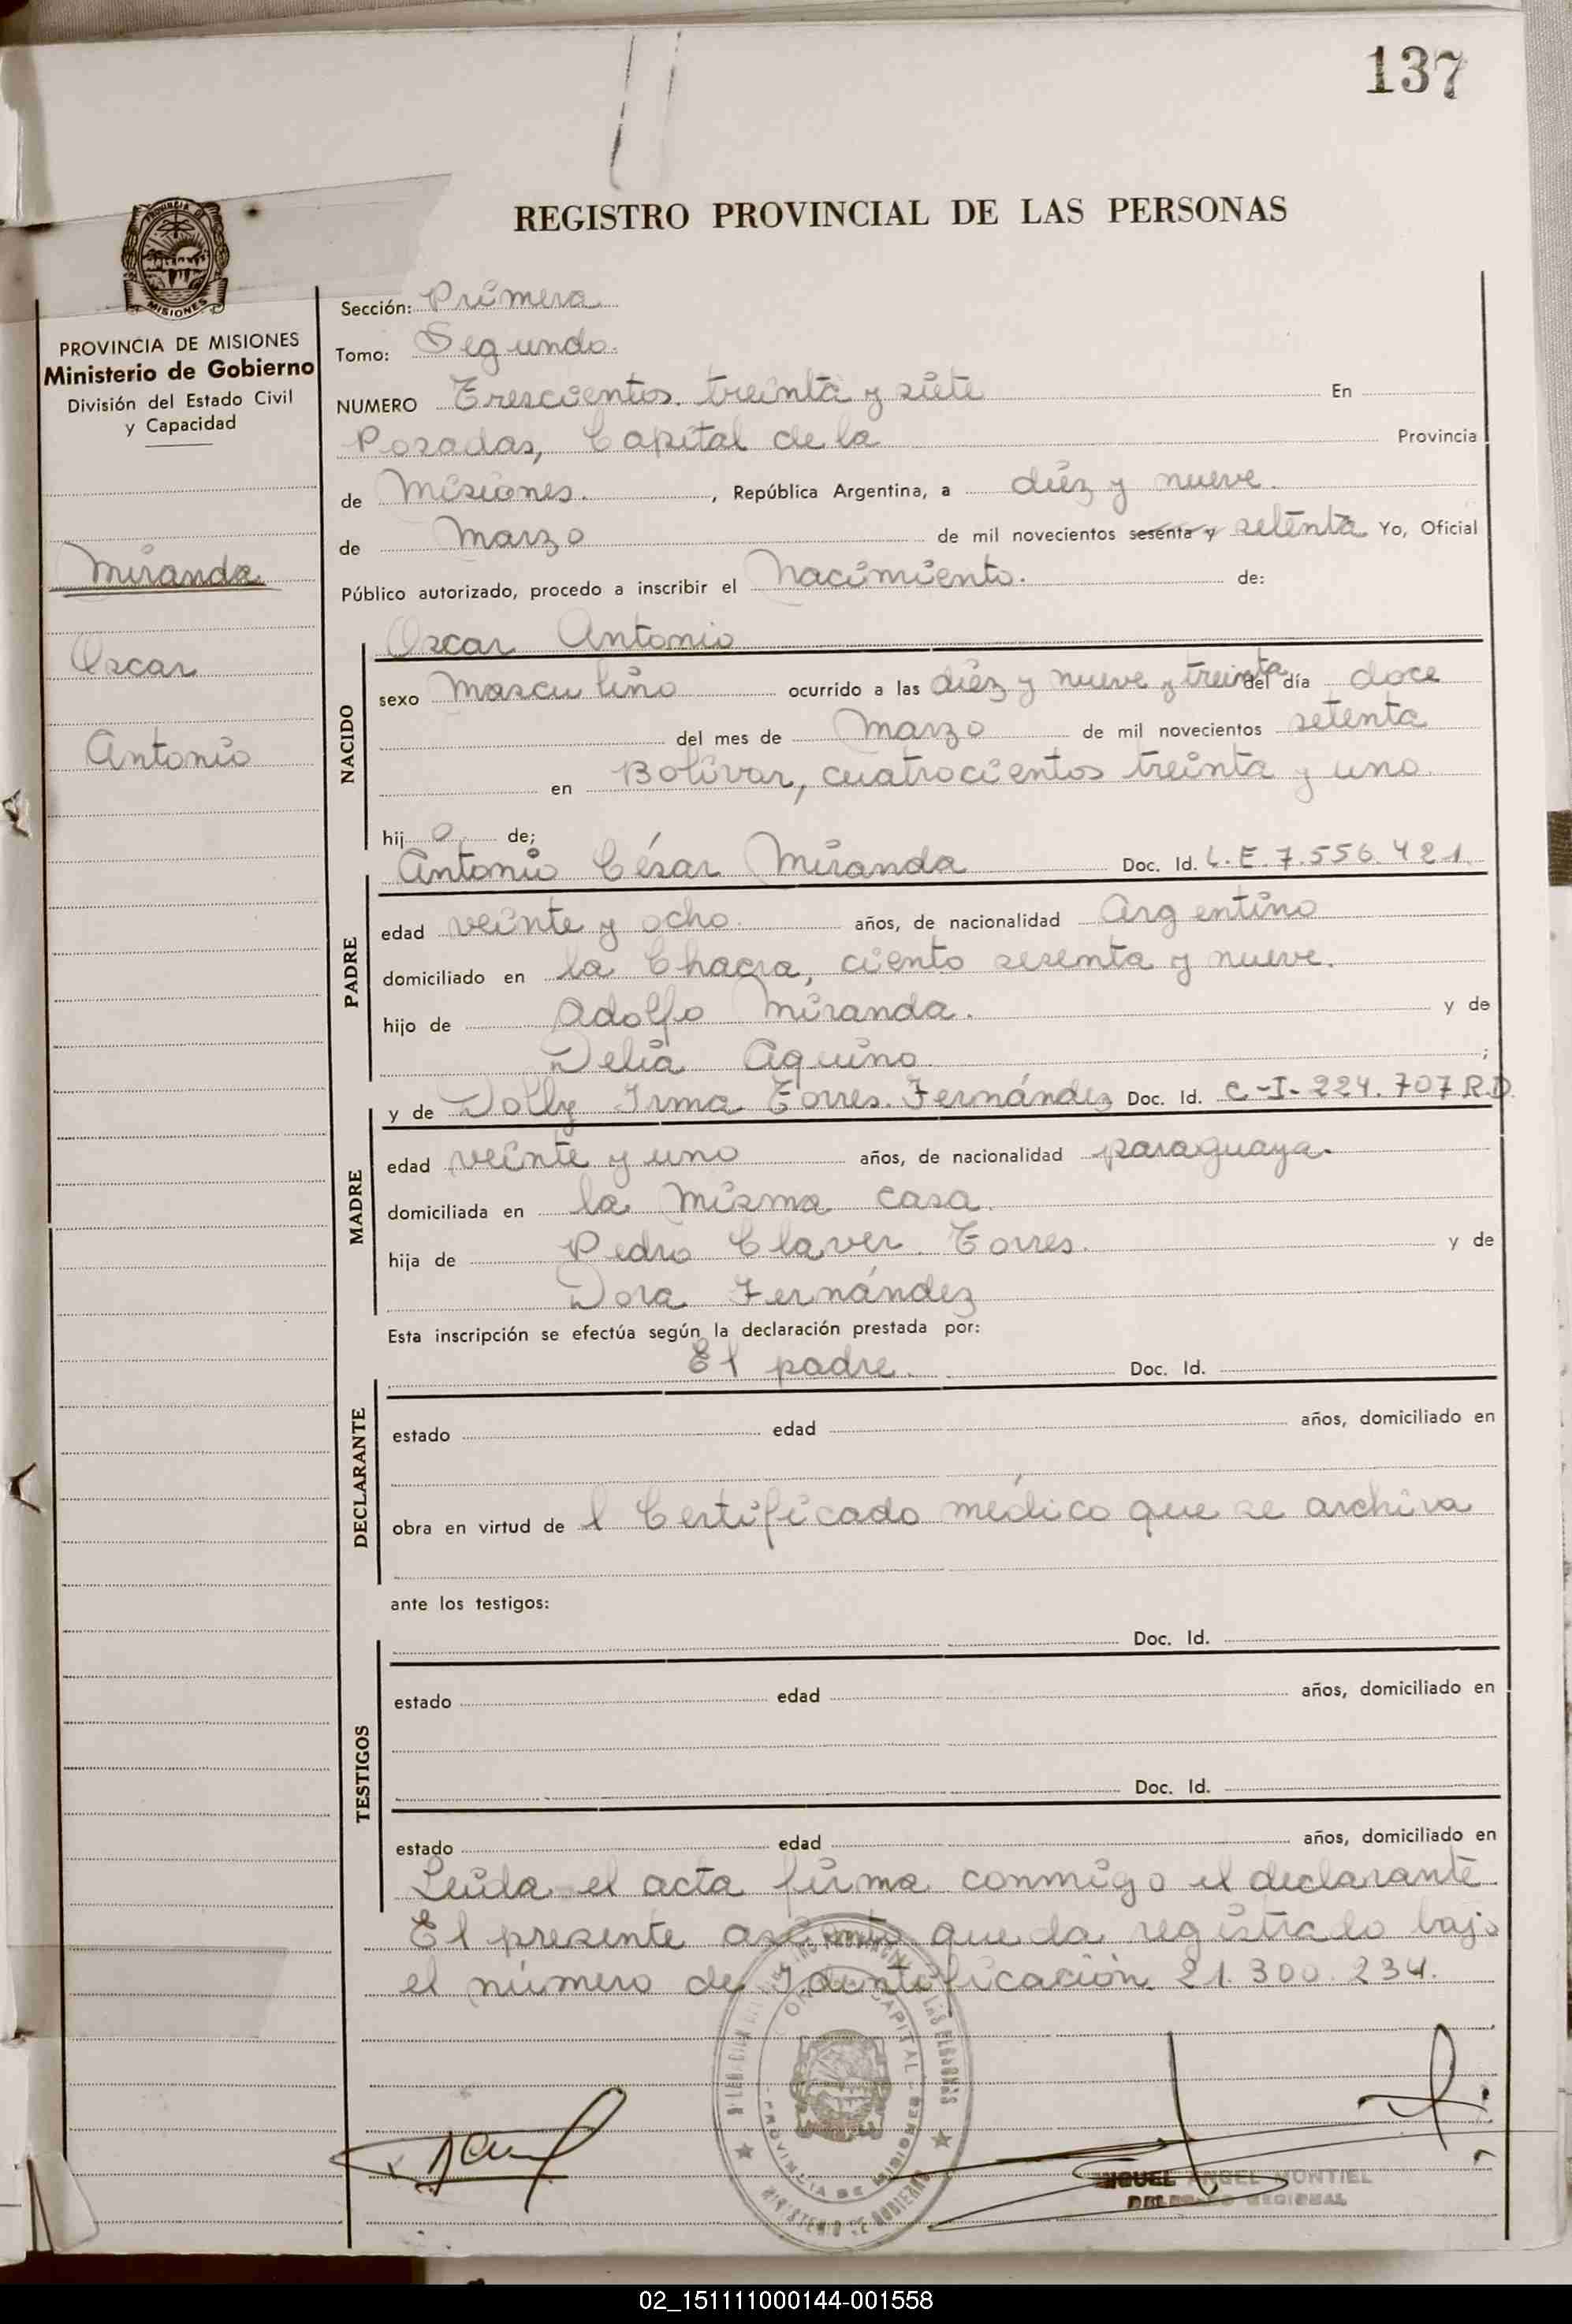 137
REGISTRO PROVINCIAL DE LAS PERSONAS
PROVINCIA DE MISIONES
Ministerio de Gobierno
División del Estado Civil
y Capacidad
Miranda
Oscar
Antonio
Sección: Primera
Tomo: Segundo.
NUMERO Trescientos treinta y siete En
Posadas, Capital de la Provincia
de Misiones. , República Argentina, a diéz y nueve.
de Marzo de mil novecientos sesenta y setenta Yo, Oficial
Público autorizado, procedo a inscribir el Nacimiento. de:
NACIDO
Oscar Antonio
sexo Masculino ocurrido a las diéz y nueve y treinta del día doce
del mes de Marzo de mil novecientos setenta
en Bolívar, cuatrocientos treinta y uno.
hij o de;
PADRE
Antonio César Miranda Doc. Id. L.E. 7.556.421.
edad veinte y ocho. años, de nacionalidad Argentino
domiciliado en la Chacra, ciento sesenta y nueve.
hijo de Adolfo Miranda. y de
Delia Aquino. ;
MADRE
y de Dolly Irma Torres Fernández Doc. Id. C-I-224.707 R.D.
edad veinte y uno años, de nacionalidad paraguaya.
domiciliada en la misma casa.
hija de Pedro Claver Torres. y de
Dora Fernández
Esta inscripción se efectúa según la declaración prestada por:
DECLARANTE
El padre. Doc. Id.
estado edad años, domiciliado en
obra en virtud de l Certificado médico que se archiva
ante los testigos:
TESTIGOS
Doc. Id.
estado edad años, domiciliado en
Doc. Id.
estado edad años, domiciliado en
Leída el acta firma conmigo el declarante.
El presente asiento queda registrado bajo
el número de Identificación 21.300.234.
MIGUEL ANGEL MONTIEL
DELEGADO REGIONAL
02_151111000144-001558